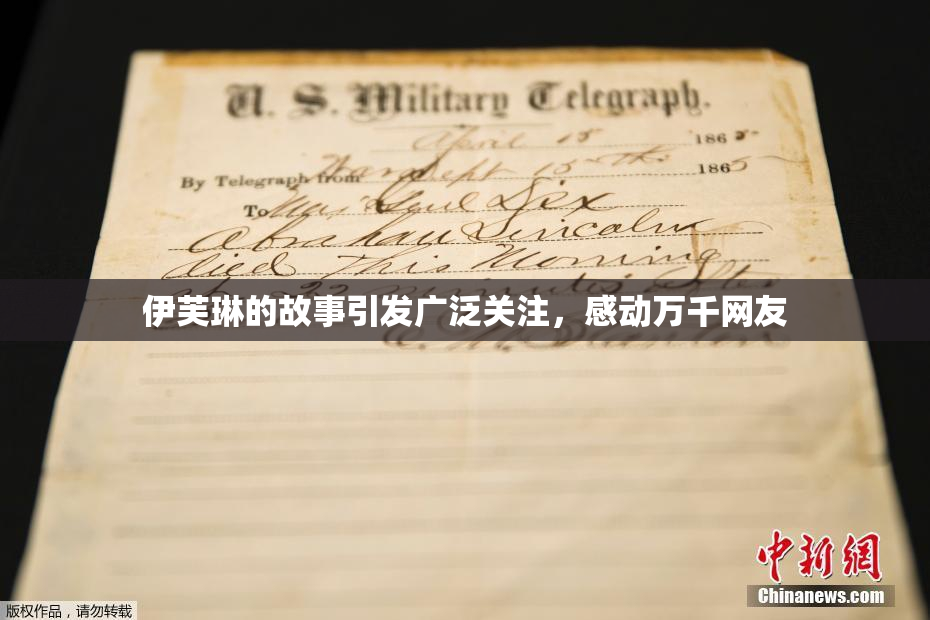 U. S. Military Telegraph.
April 15 1865
By Telegraph from War Dept 15th 1865
To Maj Genl Dix
Abraham Lincoln
died This Morning
at 22 minutes after
伊芙琳的故事引发广泛关注，感动万千网友
E. M. Stanton
中新網
Chinanews.com
版权作品，请勿转载